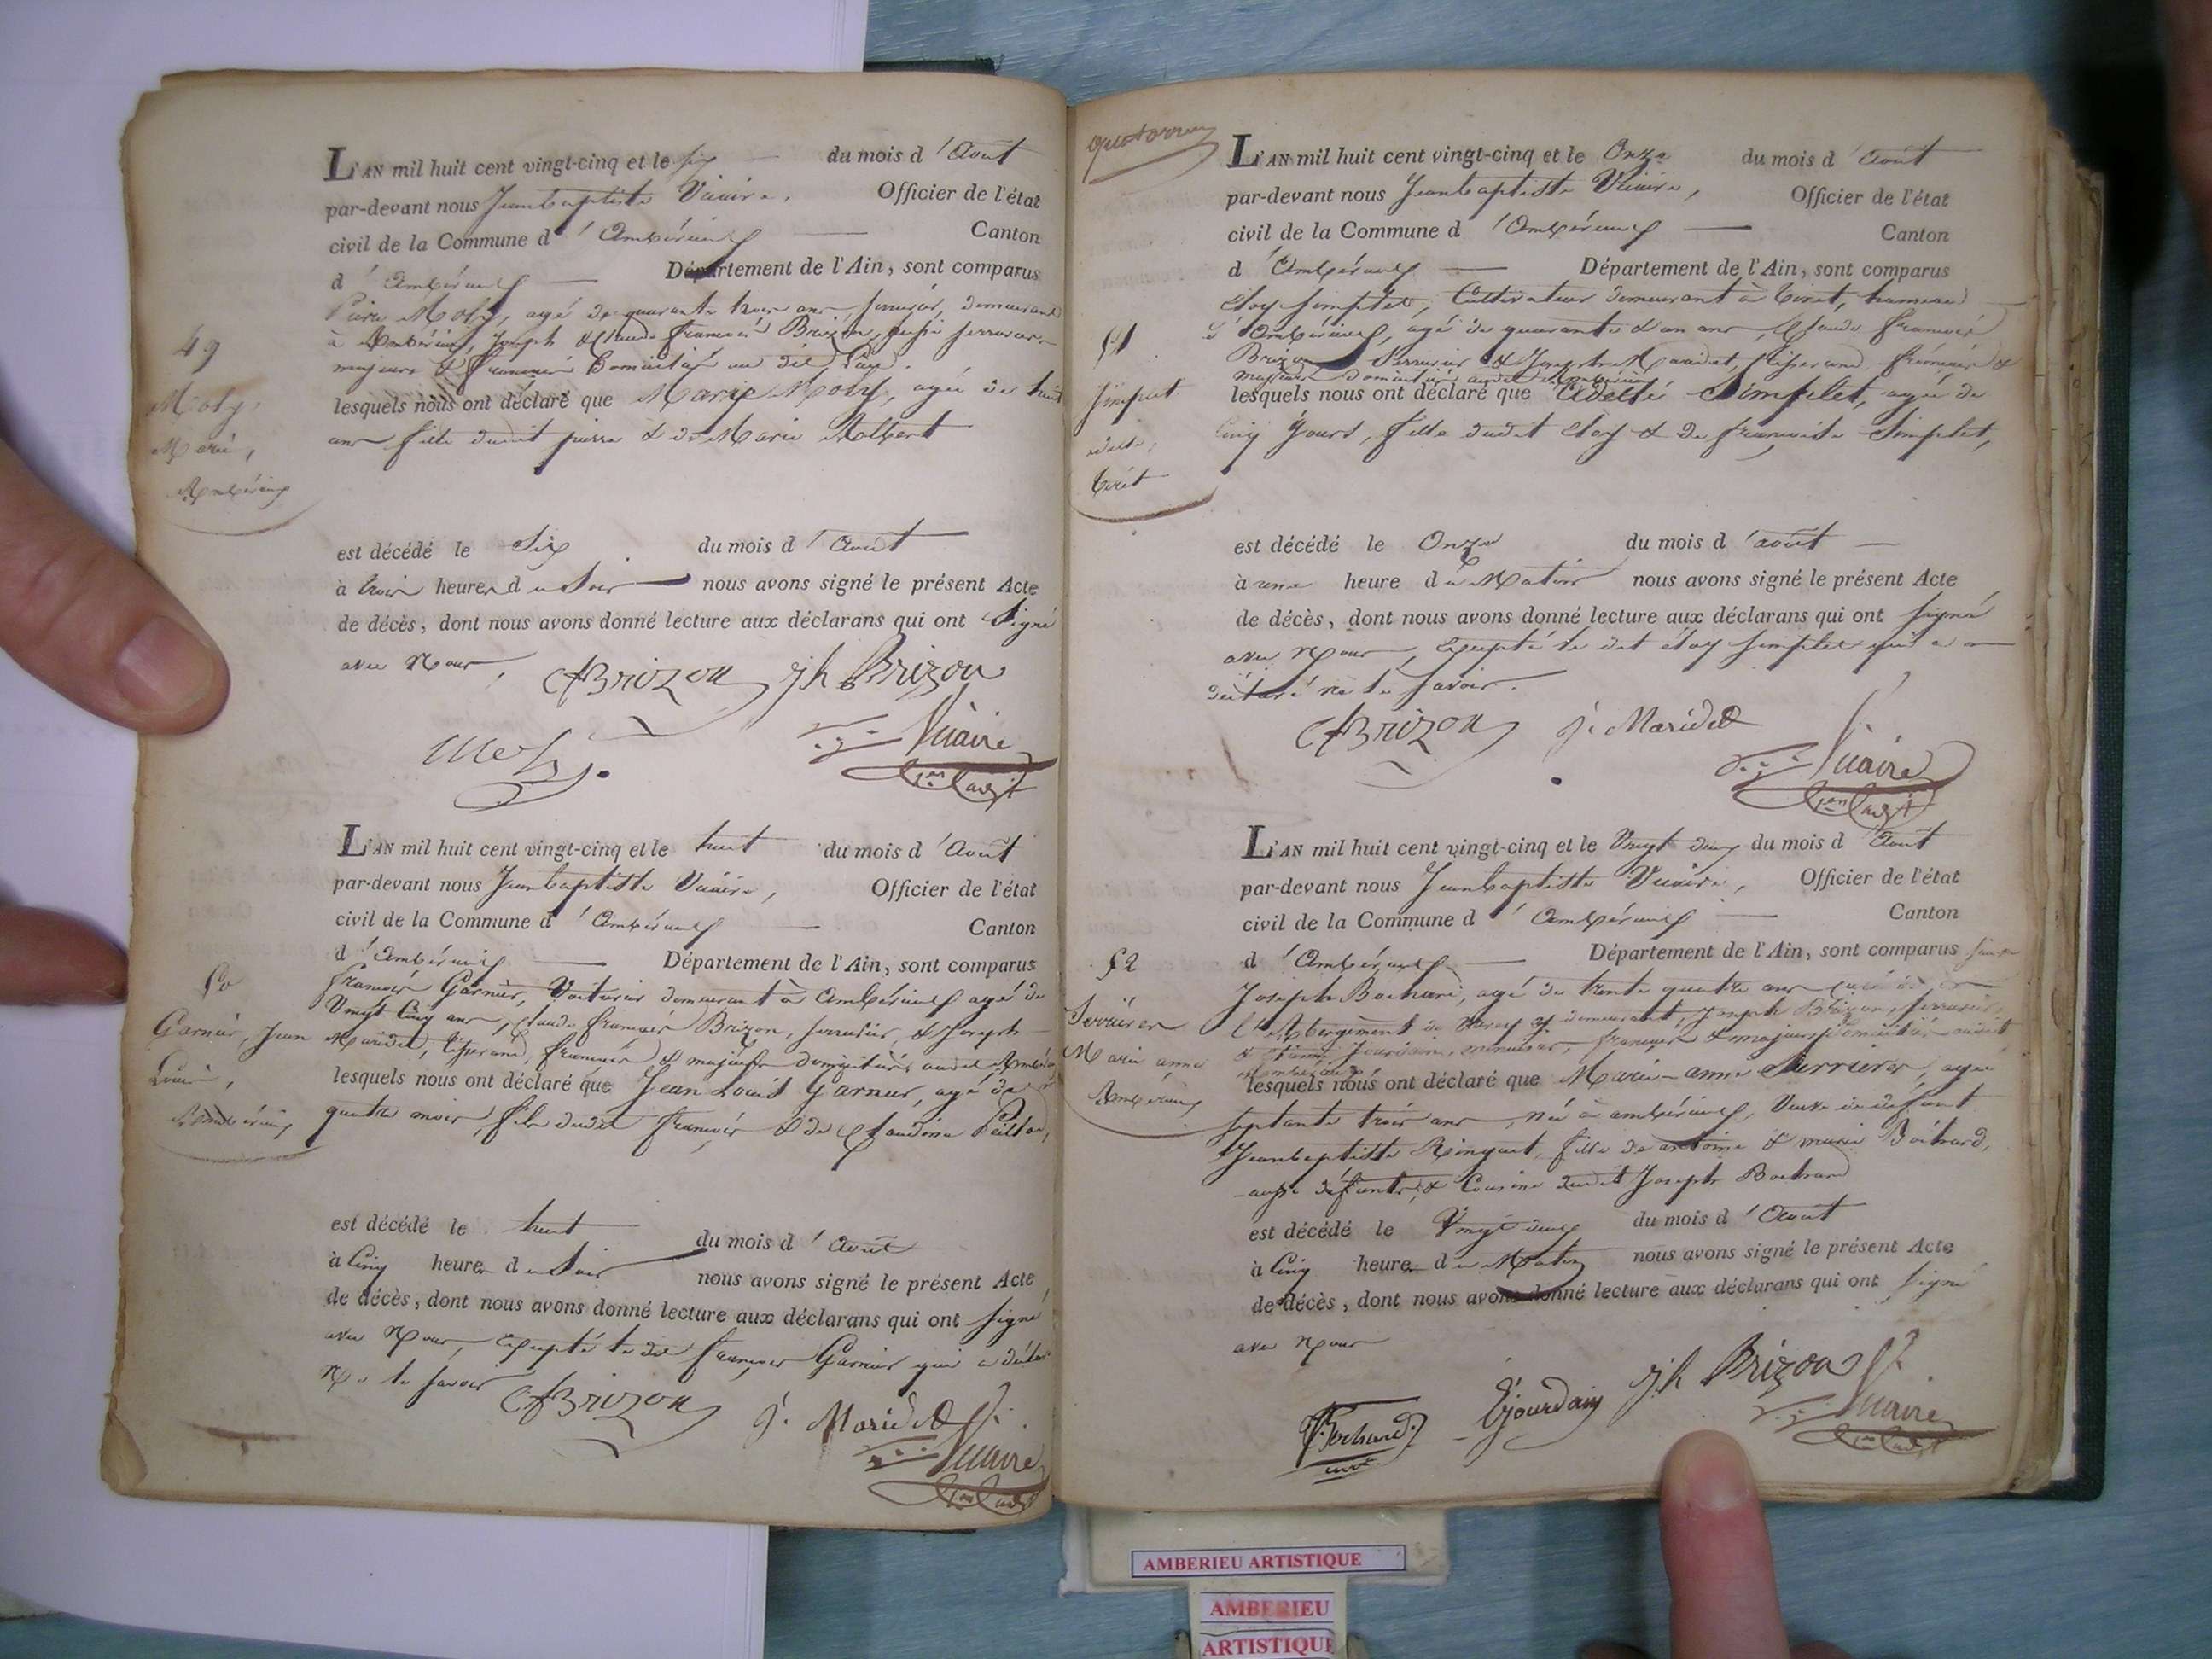 49
Moly,
Marie,
Ambérieux
L'AN mil huit cent vingt-cinq et le six du mois d'Août
par-devant nous Jeanbaptiste Vicaire, Officier de l'état
civil de la Commune d'Ambérieux Canton
d'Ambérieux Département de l'Ain, sont comparus
Pierre Moly, agé de quarante trois ans, serrurier, demeurant
à Ambérieux, Joseph & Claude françois Brizon, aussi serruriers
majeurs & françois Domiciliés au dit lieu.
lesquels nous ont déclaré que Marie Moly, agée de huit
ans fille dudit pierre & de Marie Albert
est décédé le Six du mois d'Août
à trois heures du Soir nous avons signé le présent Acte
de décès, dont nous avons donné lecture aux déclarans qui ont Signé
avec Nous,
CfBrizon jh Brizon
Moly
Vicaire
50
Garnier, Jean
Louis,
Ambérieux
L'AN mil huit cent vingt-cinq et le huit du mois d'Août
par-devant nous Jeanbaptiste Vicaire, Officier de l'état
civil de la Commune d'Ambérieux Canton
d'Ambérieux Département de l'Ain, sont comparus
françois Garnier, Voiturier demeurant à Ambérieux agé de
Vingt Cinq ans, Claude françois Brizon, serrurier, & Joseph
Maridet, tisserand, françois & majeurs domiciliés audit
lesquels nous ont déclaré que Jean Louis Garnier, agé de
quatre mois, fils dudit françois & de Claudine
est décédé le huit du mois d'Août
à Cinq heures du Soir nous avons signé le présent Acte
de décès, dont nous avons donné lecture aux déclarans qui ont signé
avec Nous, excepté le dit françois Garnier qui a déclaré
Ne le savoir
CfBrizon j. Maridet
Vicaire
quatorze
51
Simplet
adelle,
tiret
L'AN mil huit cent vingt-cinq et le Onze du mois d'Août
par-devant nous Jeanbaptiste Vicaire, Officier de l'état
civil de la Commune d'Ambérieux Canton
d'Ambérieux Département de l'Ain, sont comparus
Eloy simplet, Cultivateur demeurant à tiret, hameau
d'Ambérieux, agé de quarante & un ans, Claude françois
Brizon Serrurier & Joseph Maridet, tisserand françois &
majeurs domiciliés audit Ambérieux
lesquels nous ont déclaré que Adelle Simplet, agée de
Cinq Jours, fille dudit Eloy & de françoise Simplet,
est décédé le Onze du mois d'août
à une heure du Matin nous avons signé le présent Acte
de décès, dont nous avons donné lecture aux déclarans qui ont signé
avec Nous, excepté le dit éloy simplet qui a
déclaré ne le savoir.
CfBrizon j. Maridet
Vicaire
52
Serrières
Marie anne
Ambérieux
L'AN mil huit cent vingt-cinq et le Vingt deux du mois d'Août
par-devant nous Jeanbaptiste Vicaire, Officier de l'état
civil de la Commune d'Ambérieux Canton
d'Ambérieux Département de l'Ain, sont comparus
Joseph Bochard, agé de trente quatre ans curé de
l'Abergement de Varey y demeurant, Joseph Brizon, serrurier,
& Jourdain, menuisier, françois & majeurs domiciliés audit
Ambérieux
lesquels nous ont déclaré que Marie-anne Serrières, agée
septante trois ans, née à ambérieux, Veuve de défunt
Jeanbaptiste Ringuet, fille de antoine & marie Bochard,
aussi défunts, & Cousine dudit Joseph Bochard
est décédé le Vingt deux du mois d'Août
à Cinq heures du Matin nous avons signé le présent Acte
de décès, dont nous avons donné lecture aux déclarans qui ont signé
avec Nous
Bochard curé Ejourdain jh Brizon
Vicaire
AMBERIEU ARTISTIQUE
AMBERIEU
ARTISTIQUE